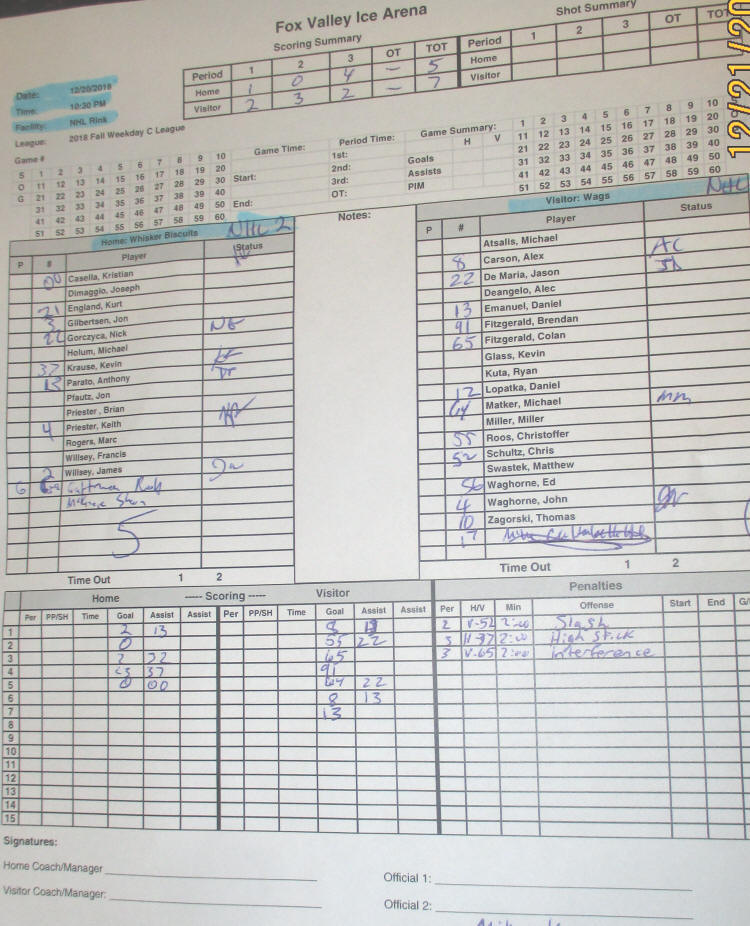 Fox Valley Ice Arena
Scoring Summary
Period 1 2 3 OT TOT
Home 1 0 4 – 5
Visitor 2 3 2 – 7
Shot Summary
Period 1 2 3 OT TOT
Home
Visitor
12/21/20
Date: 12/20/2018
Time: 10:30 PM
Facility: NHL Rink
League: 2018 Fall Weekday C League
Game #
S 1 2 3 4 5 6 7 8 9 10
O 11 12 13 14 15 16 17 18 19 20
G 21 22 23 24 25 26 27 28 29 30
31 32 33 34 35 36 37 38 39 40
41 42 43 44 45 46 47 48 49 50
51 52 53 54 55 56 57 58 59 60
Game Time:
Start:
End:
Period Time:
1st:
2nd:
3rd:
OT:
Game Summary:
H V
Goals
Assists
PIM
1 2 3 4 5 6 7 8 9 10
11 12 13 14 15 16 17 18 19 20
21 22 23 24 25 26 27 28 29 30
31 32 33 34 35 36 37 38 39 40
41 42 43 44 45 46 47 48 49 50
51 52 53 54 55 56 57 58 59 60
Home: Whisker Biscuits NHL 2
P # Player Status
00 Casella, Kristian
Dimaggio, Joseph
21 England, Kurt
3 Gilbertsen, Jon
22 Gorczyca, Nick
Holum, Michael
37 Krause, Kevin
13 Parato, Anthony
Pfautz, Jon
Priester, Brian
4 Priester, Keith
Rogers, Marc
Willsey, Francis
2 Willsey, James
G
5
Time Out 1 2
Notes:
Visitor: Wags NHL
P # Player Status
Atsalis, Michael
8 Carson, Alex AC
22 De Maria, Jason
Deangelo, Alec
13 Emanuel, Daniel
91 Fitzgerald, Brendan
65 Fitzgerald, Colan
Glass, Kevin
Kuta, Ryan
12 Lopatka, Daniel
64 Matker, Michael mm
Miller, Miller
55 Roos, Christoffer
52 Schultz, Chris
Swastek, Matthew
56 Waghorne, Ed
4 Waghorne, John
10 Zagorski, Thomas
17
Time Out 1 2
Home ----- Scoring ----- Visitor
Per PP/SH Time Goal Assist Assist Per PP/SH Time Goal Assist Assist
1 2 13 8
2 0 55 22
3 2 22 65
4 37 91
5 0 00 64 22
6 8 13
7 13
8
9
10
11
12
13
14
15
Penalties
Per H/V Min Offense Start End G/
2 V-52 2:00 Slash
3 H-37 2:00 High Stick
3 V-65 2:00 interference
Signatures:
Home Coach/Manager
Visitor Coach/Manager:
Official 1:
Official 2: